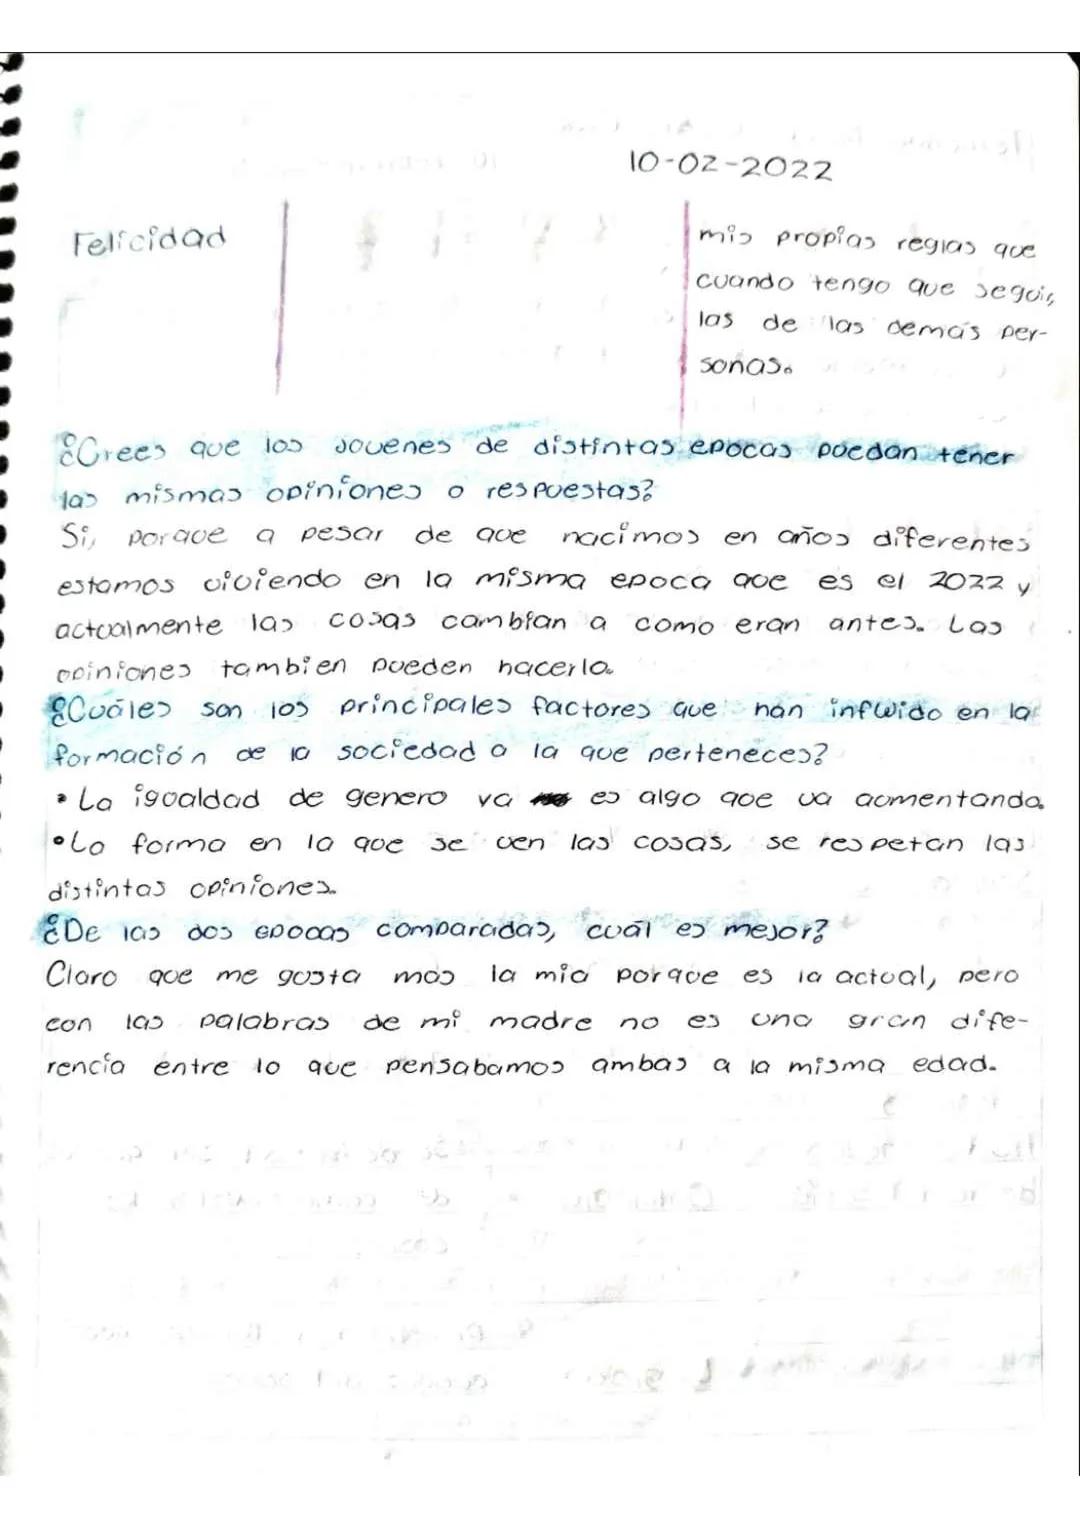 10-02-2022
Felicidad
mis propias reglas que
cuando tengo que seguir
las de las demás per-
sonas.
¿Crees que los jovenes de distintas epocas puedan tener
las mismas opiniones o respuestas?
Si, porque a pesar de que nacimos en años diferentes
estamos viviendo en la misma epoca que es el 2022 y
actualmente las cosas cambian a como eran antes. Las
opiniones tambien pueden hacerlo.
¿Cuáles son los principales factores que han influido en la
formación de la sociedad a la que perteneces?
• La igualdad de genero va es algo que va aumentando.
• La forma en la que se ven las cosas, se respetan las
distintas opiniones.
¿De las dos epocas comparadas, cuál es mejor?
Claro que me gusta más la mia porque es la actual, pero
con las palabras de mi madre no es una gran dife-
rencía entre lo que pensabamos ambas a la misma edad.